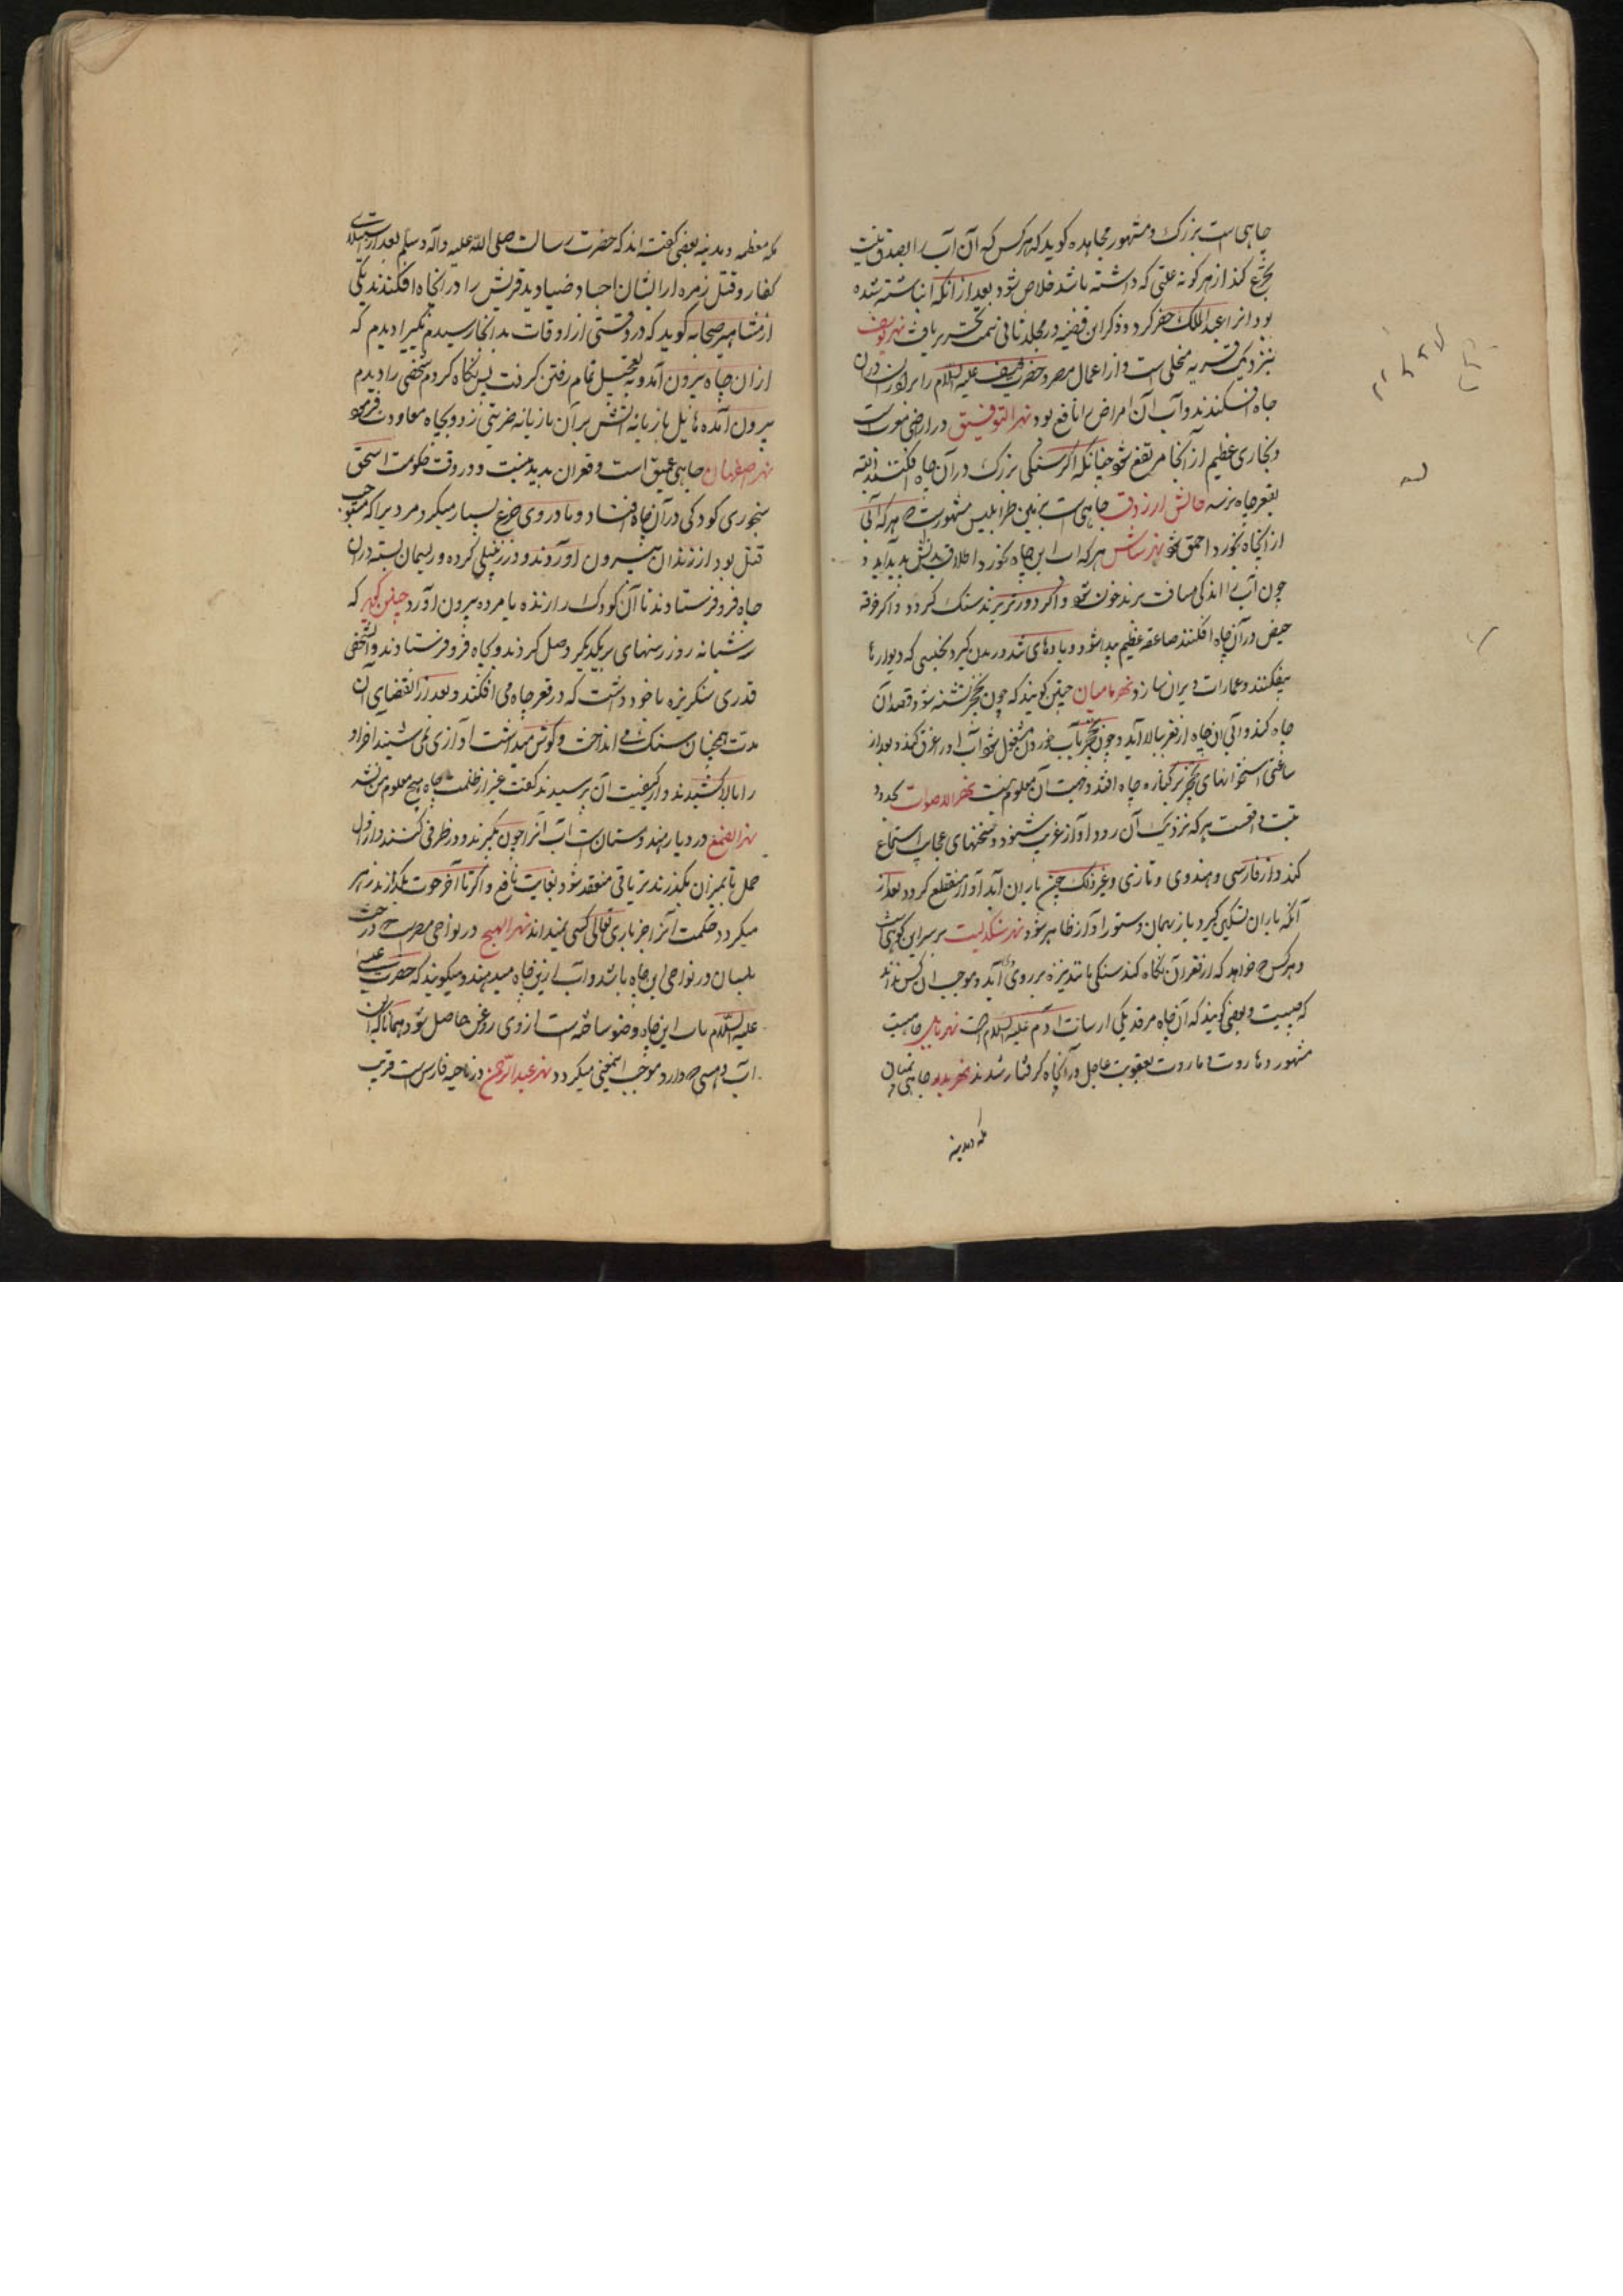 چاهی است بزرک و مشهور مجاهده کوید که هرکس که آن آب را بصدق نیت
تجرع کند از هر کونه علتی که داشته باشد خلاص شود بعد از انکه انباشته شده
بود انرا عبد الملک حفر کرد و ذکر این قضیه در مجلد ثانی سمت تحریر یافت نهر یوسف
بنزدیک قریه است و از اعمال مصر و حضرت یوسف علیه السلام را برادران دران
چاه افکندند و آب آن امراض را نافع بود نهر التوفیق در اراضی است
و بخاری عظیم از انجا مرتفع شود چنانکه اکر سنکی بزرک در آن چاه افکنند البته
بقعر چاه نرسد چاهی است بزمین طرابلس مشهورست هرکه آبی
از انچاه بخورد احمق شود هر که اب این چاه بخورد بدش پدید آید و
چون آب را اندکی مسافت برند خون شود و اکر دورتر برند سنک کردد و اکر خرقه
حیض در آن چاه افکنند صاعقه عظیم پیدا شود و بادهای تند وزیدن کیرد بحیثیتی که دیوارها
بیفکند و عمارات ویران سازد نهر بامیان چنین کویند که چون تشنه شود قصد آن
چاه کند و آب آن چاه از قعر ببالا آید و چون بآب خوردن مشغول شود آب او را غرق کند و بعد از
ساعتی استخوانهای بر کناره چاه افتد و جهت آن معلوم نیست نهر الاصوات بحدود
تبت واقعست هرکه نزدیک آن رود آواز غریب شنود و سخنهای عجایب استماع
کند و از فارسی و هندوی و تازی و غیر ذلک چون باران آید آواز منقطع کردد بعد از
آنکه باران تسکین کیرد باز بهمان دستور آواز ظاهر شود نهر بر سر این کوهی است
و هرکس خواهد که از قعر آن نکاه کند سنکی مانند نیزه بر روی آید و موجب ان کس نداند
که چیست و بعضی کویند که آن چاه مرقد یکی از آدم علیه السلام است نهر بابل چاهیست
مشهور و هاروت و ماروت بعقوبت عاجل در انچاه کرفتار شدند نهر بدر چاهی میان
مکه و مدینه
مکه معظمه و مدینه بعضی کفته اند که حضرت رسالت صلی الله علیه وآله وسلم بعد از استیلای
کفار و قتل زمره از ایشان اجساد صنادید قریش را در انچاه افکندند یکی
از مشاهیر صحابه کوید که در وقتی از اوقات بدانجا رسیدم یکی را دیدم که
ازان چاه بیرون آمد و بتعجیل تمام رفتن کرفت پس نکاه کردم شخصی را دیدم
بیرون آمده تازیانه بر آن تازیانه ضربتی زد و بچاه معاودت فرمود
نهر اصفهان چاهی عمیق است و قعر ان پدید نیست و در وقت حکومت اسحق
کودکی در آن چاه افتاد و مادر وی جزع بسیار میکرد مردیرا که مستوجب
قتل بود از زندان بیرون آوردند و در زنبیلی کرده و ریسمان بسته دران
چاه فرو فرستادند تا آن کودک را زنده یا مرده بیرون آورد چنین کویند که
سه شبانه روز رسنهای بر یکدیکر وصل کردند و بچاه فرو فرستادند و آن شخص
قدری سنکریزه با خود داشت که در قعر چاه می افکند و بعد از انقضای آن
مدت همچنان سنک می انداخت و کوش میداشت آوازی نمی شنید اخر او
را بالا کشیدند و از کیفیت آن پرسیدند کفت غیر از ظلمت چاه هیچ معلوم من نشد
در دیار هندوستان است آب آنرا چون بکیرند و در ظرفی کنند و از اول
حمل تا بمیزان بکذرند تریاقی منعقد شود بغایت نافع و اکر تا آخر حوت بکذارند زهر
میکردد حکمت آنرا جز باری تعالی کسی نمیداند نهر در نواحی مصرست درخت
بلسان در نواحی این چاه باشد و آب ازین چاه میدهند و میکویند که حضرت عیسی
علیه السلام باب این چاه وضو ساخته است از وی روغن حاصل شود همانا که آن
اب دارد موجب این معنی میکردد نهر عبد الرحمن در ناحیه فارس است قریب